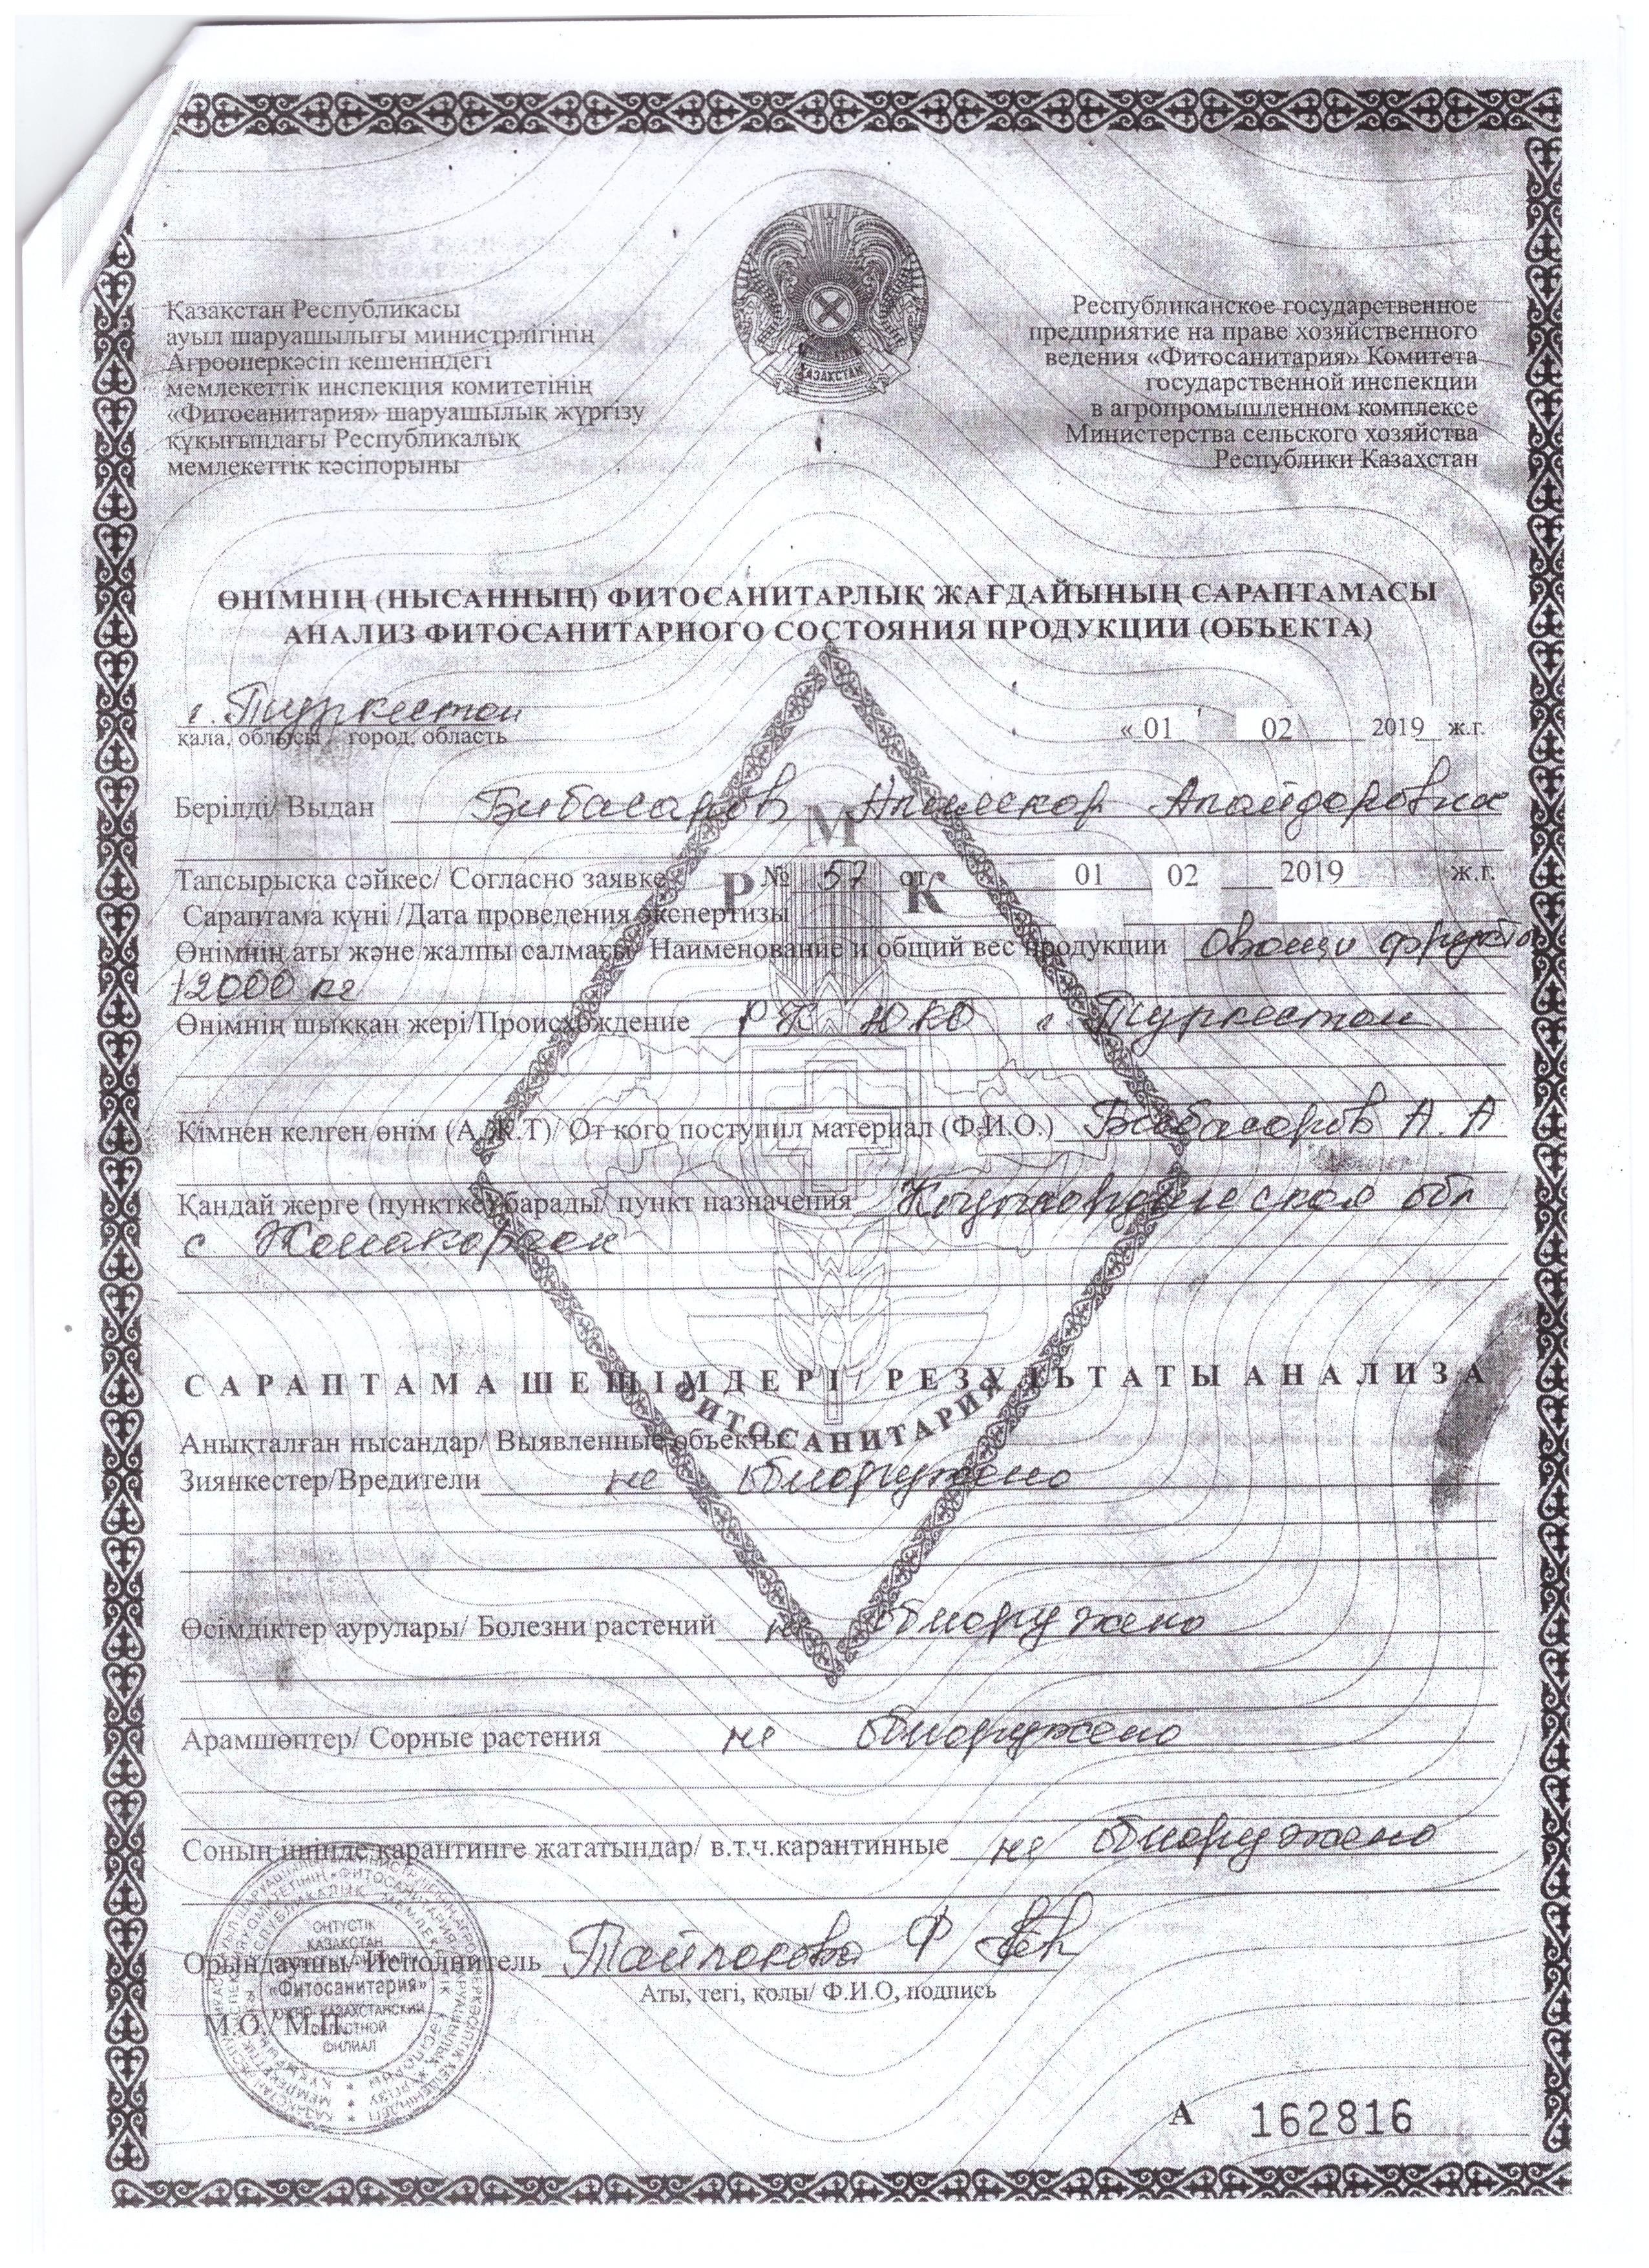 Қазақстан Республикасы
ауыл шаруашылығы министрлігінің
Агроөнеркәсіп кешеніндегі
мемлекеттік инспекция комитетінің
«Фитосанитария» шаруашылық жүргізу
құқығындағы Республикалық
мемлекеттік кәсіпорыны
Республиканское государственное
предприятие на праве хозяйственного
ведения «Фитосанитария» Комитета
государственной инспекции
в агропромышленном комплексе
Министерства сельского хозяйства
Республики Казахстан
ҚАЗАҚСТАН
ӨНІМНІҢ (НЫСАННЫҢ) ФИТОСАНИТАРЛЫҚ ЖАҒДАЙЫНЫҢ САРАПТАМАСЫ
АНАЛИЗ ФИТОСАНИТАРНОГО СОСТОЯНИЯ ПРОДУКЦИИ (ОБЪЕКТА)
г. Туркестан
қала, облысы / город, область
« 01 02 2019 ж.г.
Берілді/ Выдан Бибасаров
М
Тапсырысқа сәйкес/ Согласно заявке № 57 от 01 02 2019 ж.г.
Р К
Сараптама күні /Дата проведения экспертизы
Өнімнің аты және жалпы салмағы/ Наименование и общий вес продукции Овощи фрукты
12000 кг
Өнімнің шыққан жері/Происхождение РК ЮКО г. Туркестан
Кімнен келген өнім (А.Ж.Т)/ От кого поступил материал (Ф.И.О.) Бибасаров А. А
Қандай жерге (пунктке) барады/ пункт назначения обл
с. Жанакорган
САРАПТАМА ШЕШІМДЕРІ / РЕЗУЛЬТАТЫ АНАЛИЗА
ФИТОСАНИТАРИЯ
Анықталған нысандар/ Выявленные объекты:
Зиянкестер/Вредители не обнаружено
Өсімдіктер аурулары/ Болезни растений не обнаружено
Арамшөптер/ Сорные растения не обнаружено
Соның ішінде карантинге жататындар/ в.т.ч.карантинные не обнаружено
Орындаушы/ Исполнитель Ф
Аты, тегі, қолы/ Ф.И.О, подпись
М.О./ М.П.
ОҢТҮСТІК
ҚАЗАҚСТАН
«Фитосанитария»
ЮЖНО-КАЗАХСТАНСКИЙ
ОБЛАСТНОЙ
ФИЛИАЛ
А 162816